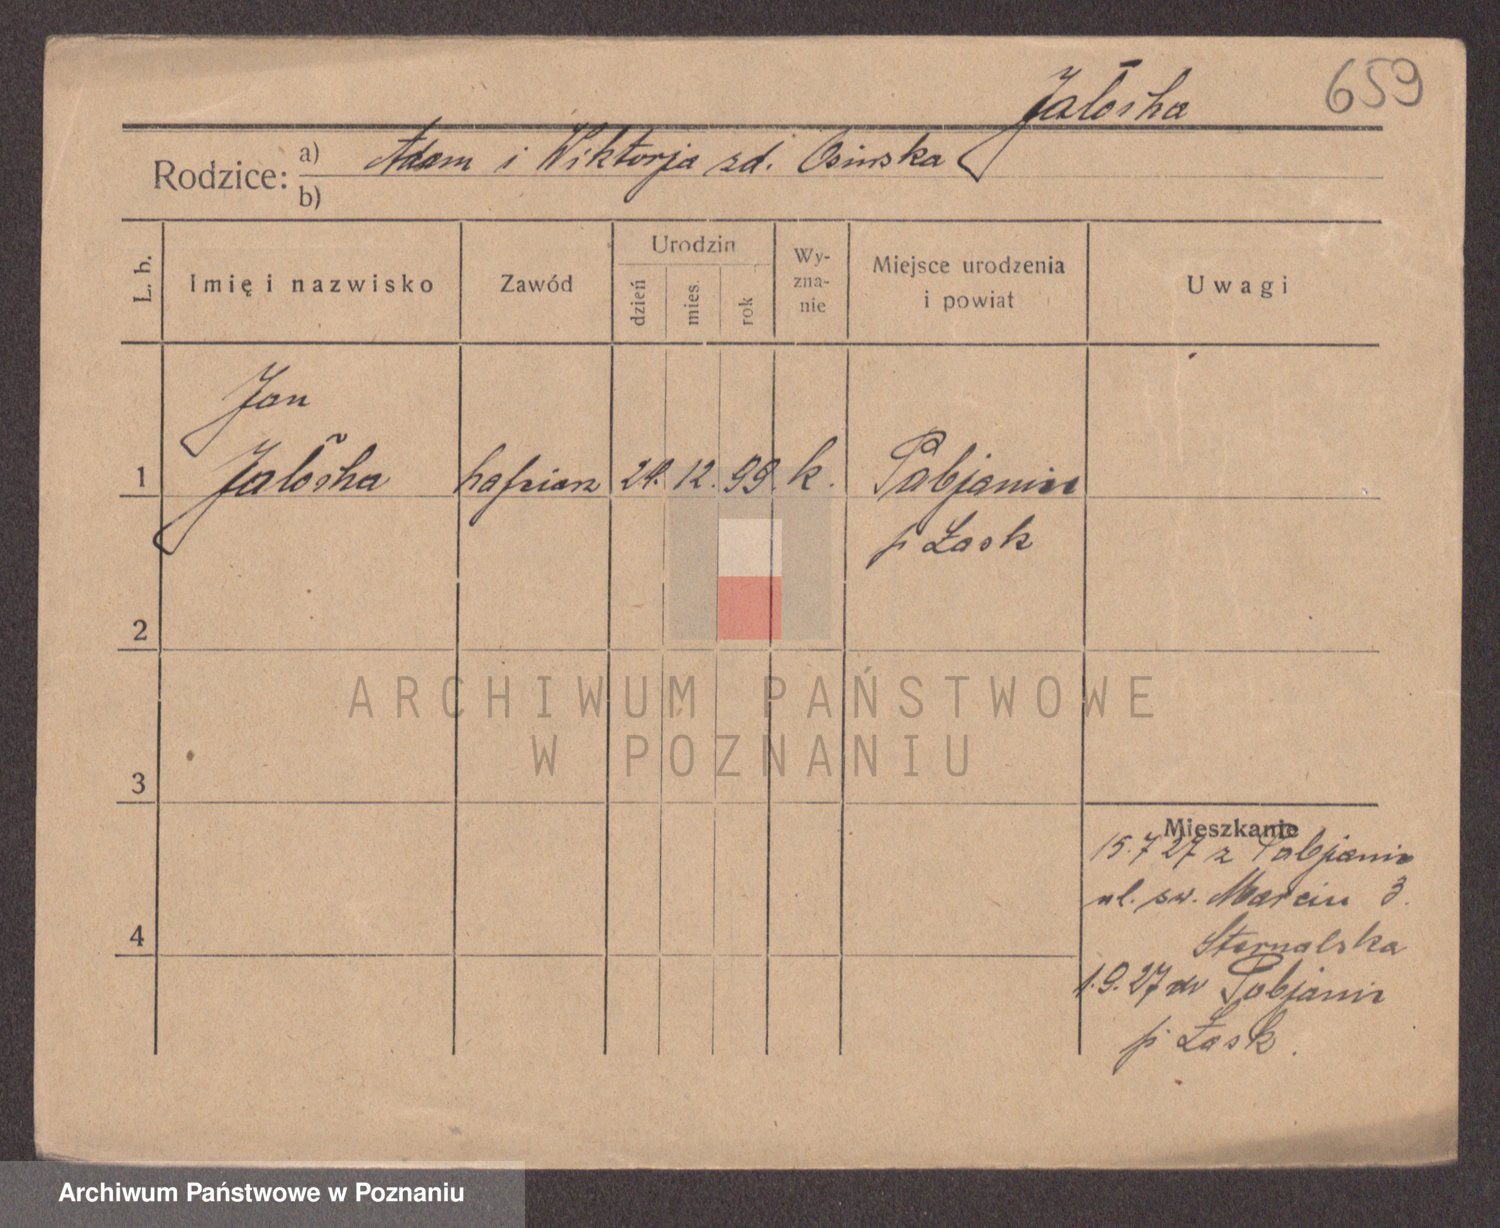 659
Jałośka
Rodzice: a) Adam i Wiktorja zd. Osinska
b)
L. b. Imię i nazwisko Zawód Urodzin dzień mies. rok Wy-zna-nie Miejsce urodzenia i powiat Uwagi
Jan
1 Jałośka hafciarz 24. 12. 99. k. Pabjanice
p Łask
2
ARCHIWUM PAŃSTWOWE
W POZNANIU
3
Mieszkanie
15.7 27 z Pabjanic
4
ul. św. Marcin 3.
1.9.27 do Pabjanic
p. Łask.
Archiwum Państwowe w Poznaniu